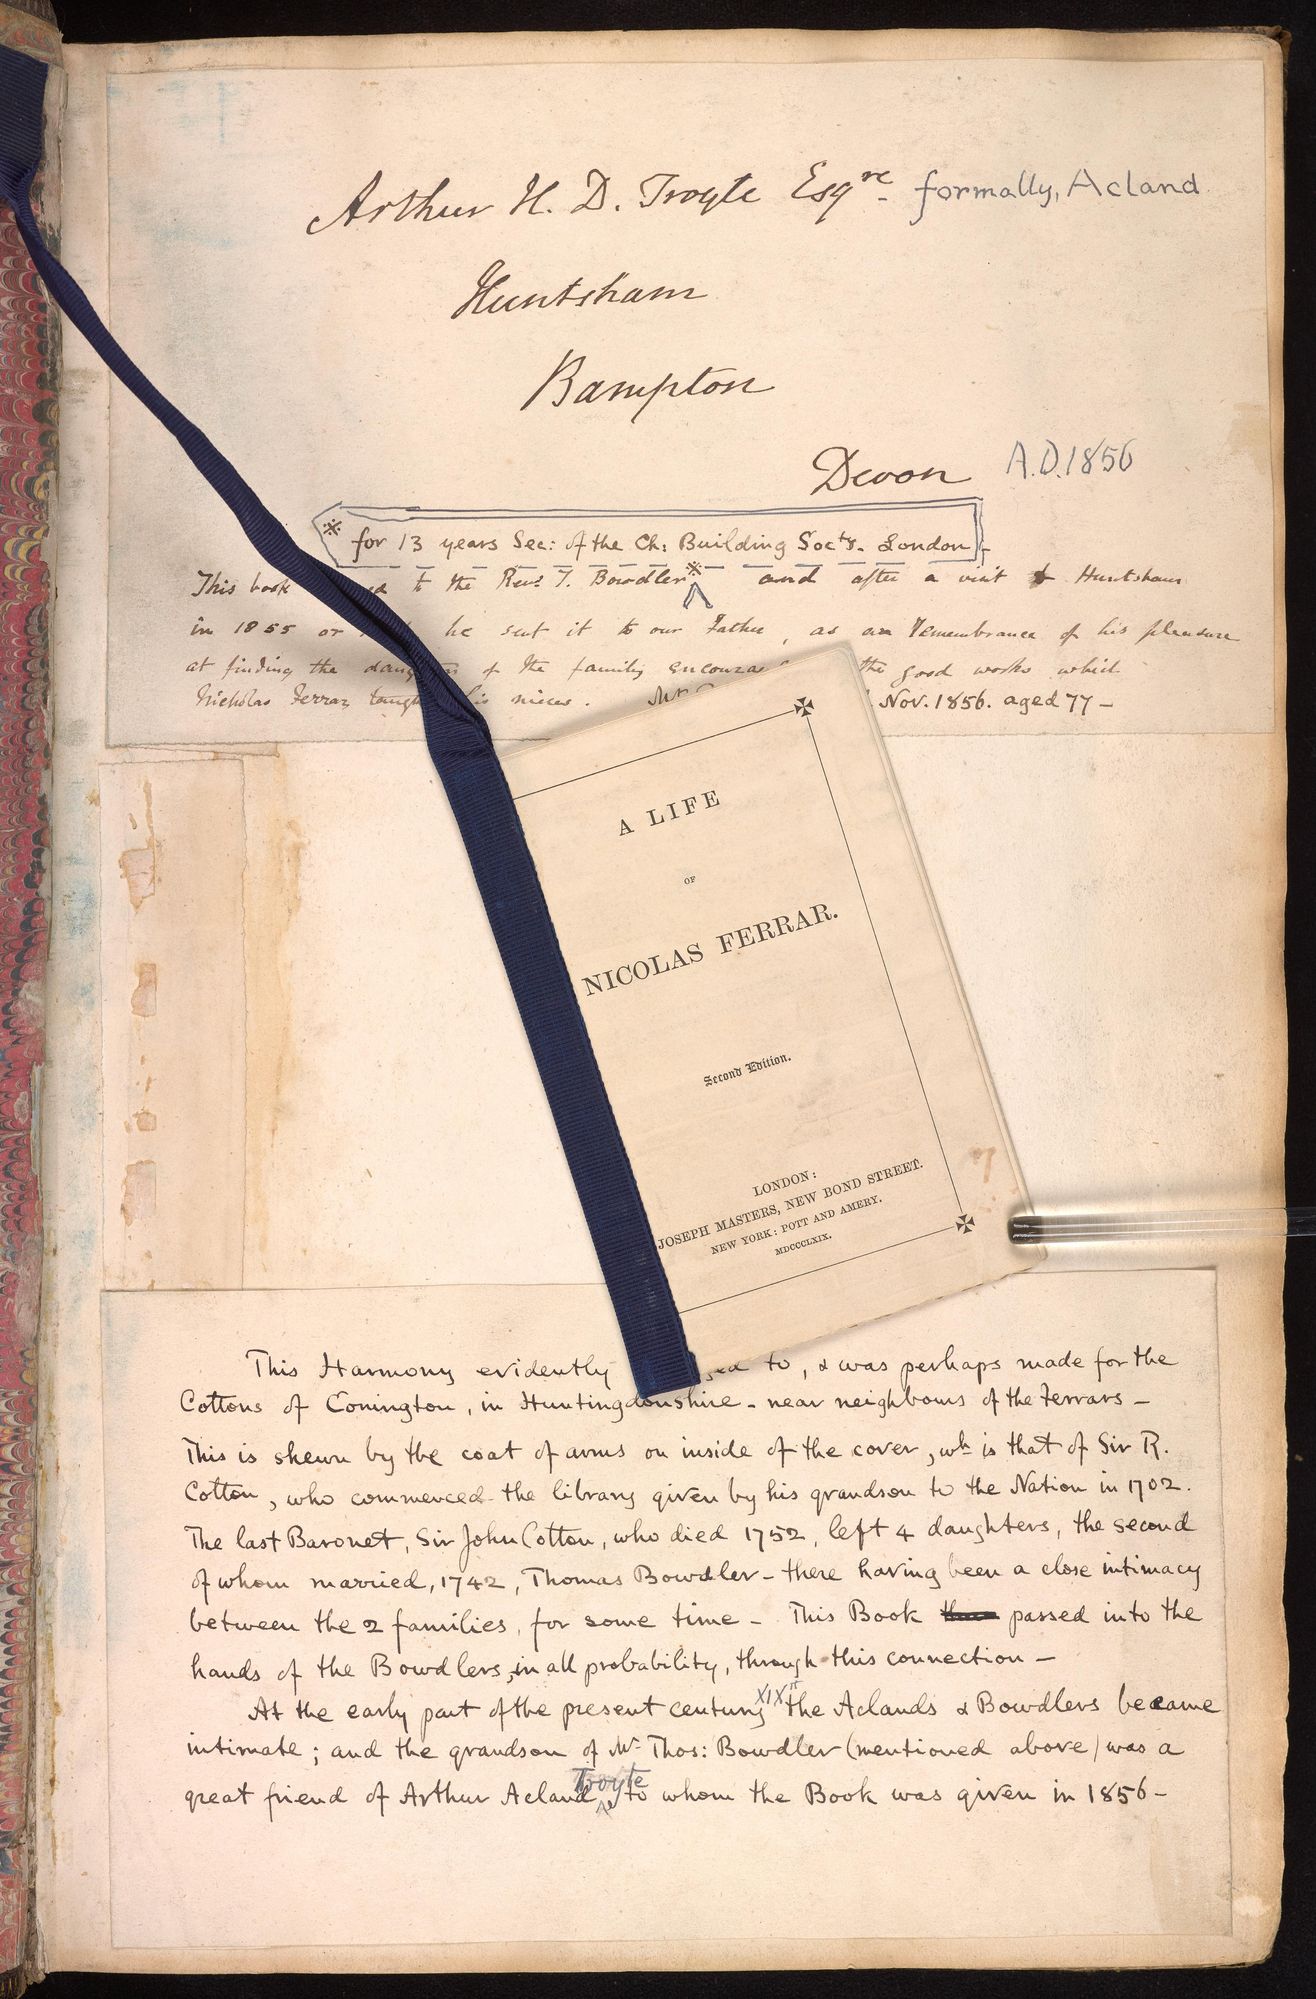 Arthur H. D. Troyte Esqre. formally, Acland
Huntsham
Bampton
Devon A.D. 1856
※ for 13 years Sec: of the Ch: Building Socty. London -
This book to the Revd. T. Bowdler※ and after a visit to Huntsham
in 1855 or he sent it to our Father, as a remembrance of his pleasure
at finding the of the family the good works which
Nicholas Ferrar his nieces. Mr. Nov. 1856. aged 77 -
A LIFE
OF
NICOLAS FERRAR.
Second Edition.
LONDON:
JOSEPH MASTERS, NEW BOND STREET.
NEW YORK: POTT AND AMERY.
MDCCCLXIX.
This Harmony evidently to, & was perhaps made for the
Cottons of Conington, in Huntingdonshire - near neighbours of the Ferrars -
This is shewn by the coat of arms on inside of the cover, wh. is that of Sir R.
Cotton, who commenced the library given by his grandson to the Nation in 1702.
The last Baronet, Sir John Cotton, who died 1752, left 4 daughters, the second
of whom married, 1742, Thomas Bowdler - there having been a close intimacy
between the 2 families, for some time - This Book passed into the
hands of the Bowdlers, in all probability, through this connection -
At the early part of the present century XIXth the Aclands & Bowdlers became
intimate; and the grandson of Mr. Thos: Bowdler (mentioned above) was a
great friend of Arthur Acland Troyte, to whom the Book was given in 1856 -